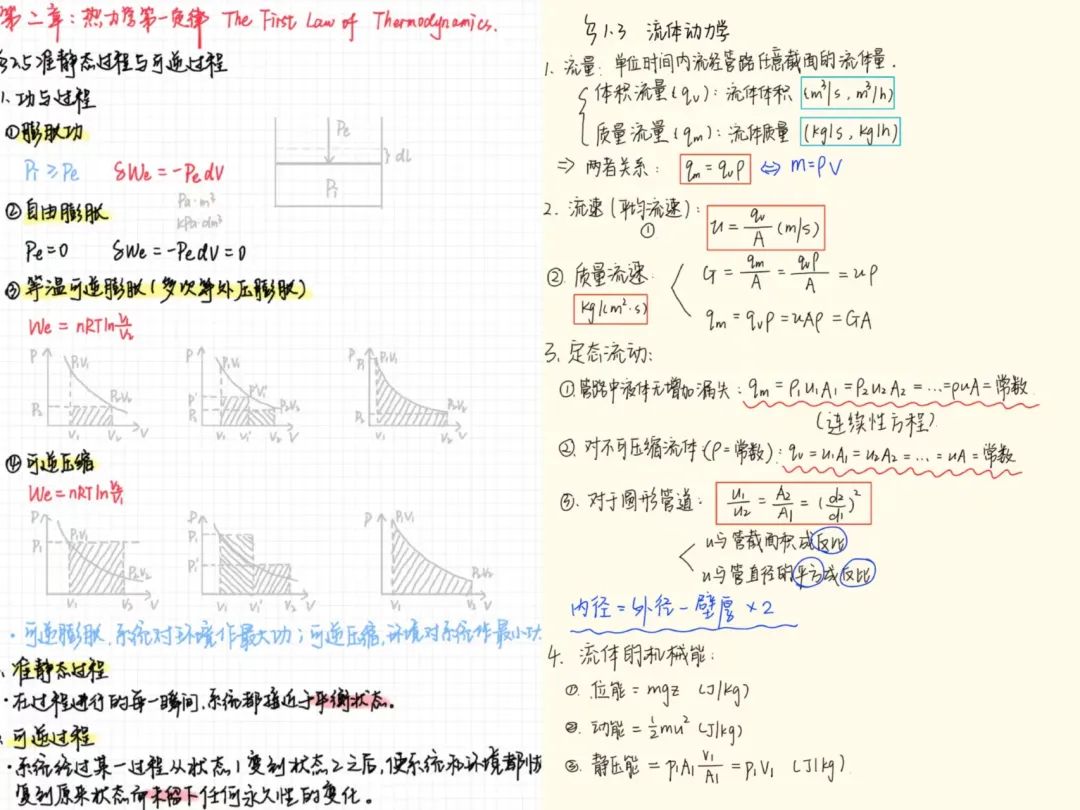 第二章：热力学第一定律 The First Law of Thermodynamics.
§2.5 准静态过程与可逆过程
1. 功与过程
①膨胀功
Pi ≥ Pe δWe = -PedV
Pa·m³
kPa·dm³
Pe
dl
Pi
②自由膨胀
Pe=0 δWe=-PedV=0
③等温可逆膨胀(多次等外压膨胀)
We = nRTln V₁/V₂
P P₁V₁ P₂V₂ P₂ V₁ V₂ V
P P₁V₁ P' P'V' P₂ P₂V₂ V₁ V' V₂ V
P P₁ P₁V₁ P₂V₂ P₂ V₁ V₂ V
④可逆压缩
We=nRTln
P P₁V₁ P₁ P₂V₂ V₁ V₂ V
P P₁V₁ V₁ V₁' V₂ V
P P₁V₁ P₂V₂ V₁ V₂ V
·可逆膨胀,系统对环境作最大功；可逆压缩,环境对系统作最小功
准静态过程
·在过程进行的每一瞬间,系统都接近于平衡状态。
可逆过程
·系统经过某一过程从状态1变到状态2之后,使系统和环境都
复到原来状态而未留下任何永久性的变化。
§1.3 流体动力学
1. 流量: 单位时间内流经管路任意截面的流体量.
体积流量(qv): 流体体积 (m³/s, m³/h)
质量流量(qm): 流体质量 (kg/s, kg/h)
⇒ 两者关系: qm = qvρ ⇔ m=ρV
2. 流速(平均流速): u = qv/A (m/s)
①
② 质量流速 G = qm/A = qvρ/A = uρ
kg/(m²·s) qm = qvρ = uAρ = GA
3. 定态流动:
①管路中流体无增加漏失: qm = ρ₁u₁A₁ = ρ₂u₂A₂ = …=ρuA=常数
(连续性方程)
② 对不可压缩流体(ρ=常数): qv = u₁A₁ = u₂A₂ = … = uA = 常数
③. 对于圆形管道: u₁/u₂ = A₂/A₁ = (d₂/d₁)²
u与管截面积成反比
u与管直径的平方成反比
内径=外径-壁厚×2
4. 流体的机械能:
①. 位能 = mgz (J/kg)
②. 动能 = ½mu² (J/kg)
③. 静压能 = p₁A₁ V₁/A₁ = p₁V₁ (J/kg)